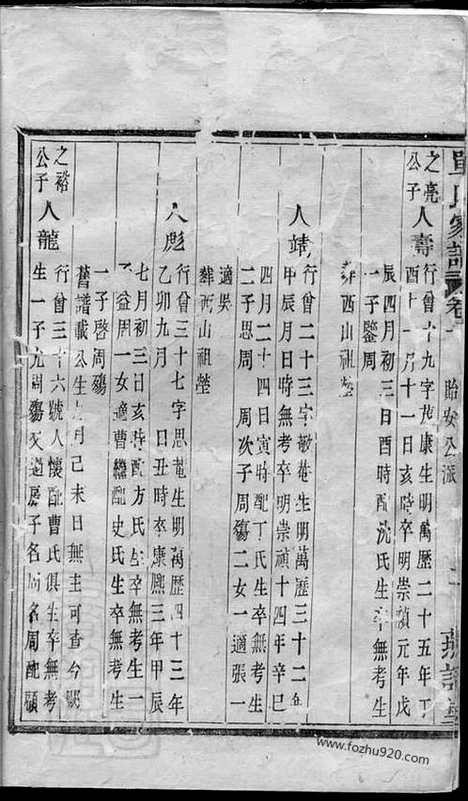 氏家譜 卷 貽安公派
之亮公子
人壽
行曾十九字 康生明萬歷二十五年丁
酉十一月十一日亥時卒明崇禎元年戊
辰四月初三日酉時配沈氏生卒無考生
一子鑒周
葬西山祖塋
人靖
行曾二十三字敏菴生明萬歷三十二年
甲辰月日時無考卒明崇禎十四年辛巳
四月二十四日寅時配丁氏生卒無考生
二子思周 周次子周殤二女一適張一
適吳
葬西山祖塋
人彪
行曾三十七字思菴生明萬歷四十三年
乙卯九月 日丑時卒康熙三年甲辰
七月初三日亥時配方氏生卒無考生一
子益周一女適曹繼配史氏生卒無考生
一子啓周殤
舊譜載公生 月己未日無主可查今闕
之裕公子
人龍
行曾三十六號人懷配曹氏俱生卒無考
生一子九周殤又過房子名周配顧
www.fozhu920.com